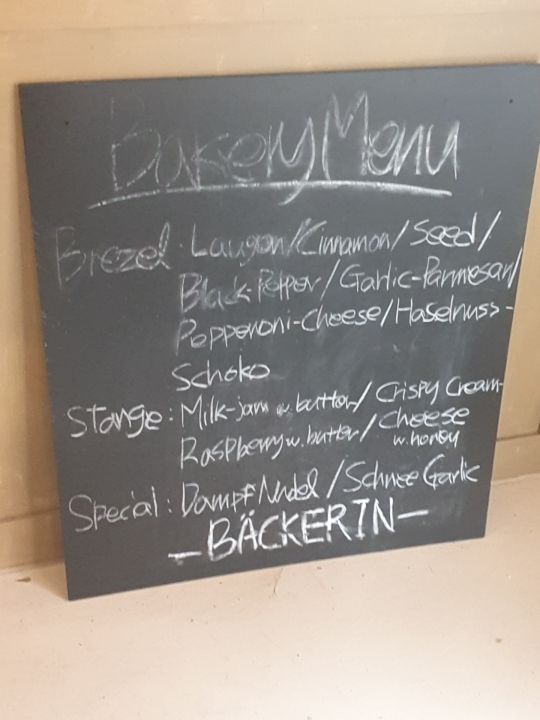 Bakery Menu
Brezel: Laugen/Cinnamon/Seed/
Black-Pepper/Garlic-Parmesan/
Pepperoni-Cheese/Haselnuss-
Schoko
Stange: Milk-jam w.butter/Crispy Cream-
Raspberry w.butter/Cheese
w.honey
Special: Dampf Nudel/Schnee Garlic
-BÄCKERIN-